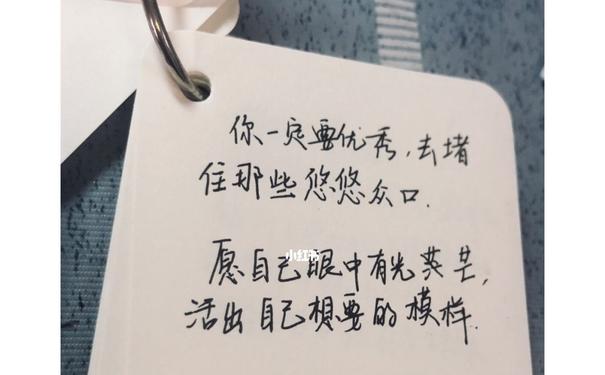 你一定要优秀,去堵
住那些悠悠众口.
小红书
愿自己眼中有光芒,
活出自己想要的模样.